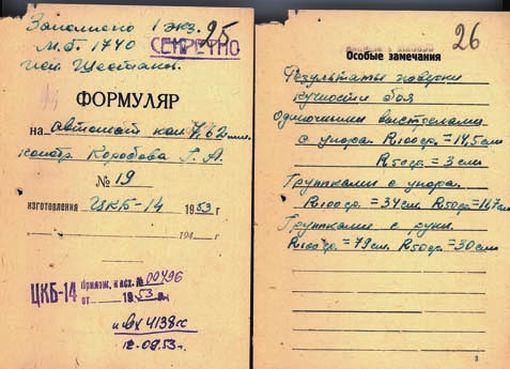 Заполнено 1 экз.
М.б. 1740
СЕКРЕТНО
исп. Шестаков.
ФОРМУЛЯР
на автомат кал 7,62 мм.
констр. Коробова Г. А.
№ 19
изготовления ЦКБ-14 1953 г
194 г
ЦКБ-14 Прилож. к исх. № 00496
от 1953 г.
и вх 4138сс
12-09.53г.
26
Особые замечания
Результаты поверки
кучности боя
Одиночными выстрелами
с упора. R100ср. = 14,5см
R50ср = 3см
Группками с упора.
R100ср. = 34см R50ср = 14,7см
Группками с руки.
R100ср. = 79см. R50ср. = 30см
3